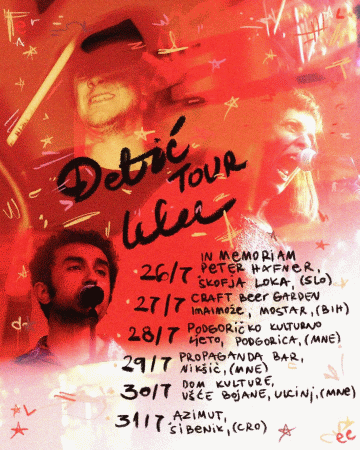 Detić
TOUR
26/7 IN MEMORIAM
PETER HAFNER,
ŠKOFJA LOKA, (SLO)
27/7 CRAFT BEER GARDEN
IMAIMOŽE, MOSTAR, (BIH)
28/7 PODGORIČKO KULTURNO
LJETO, PODGORICA, (MNE)
29/7 PROPAGANDA BAR,
NIKŠIĆ, (MNE)
30/7 DOM KULTURE,
UŠĆE BOJANE, ULCINJ, (MNE)
31/7 AZIMUT,
ŠIBENIK, (CRO)